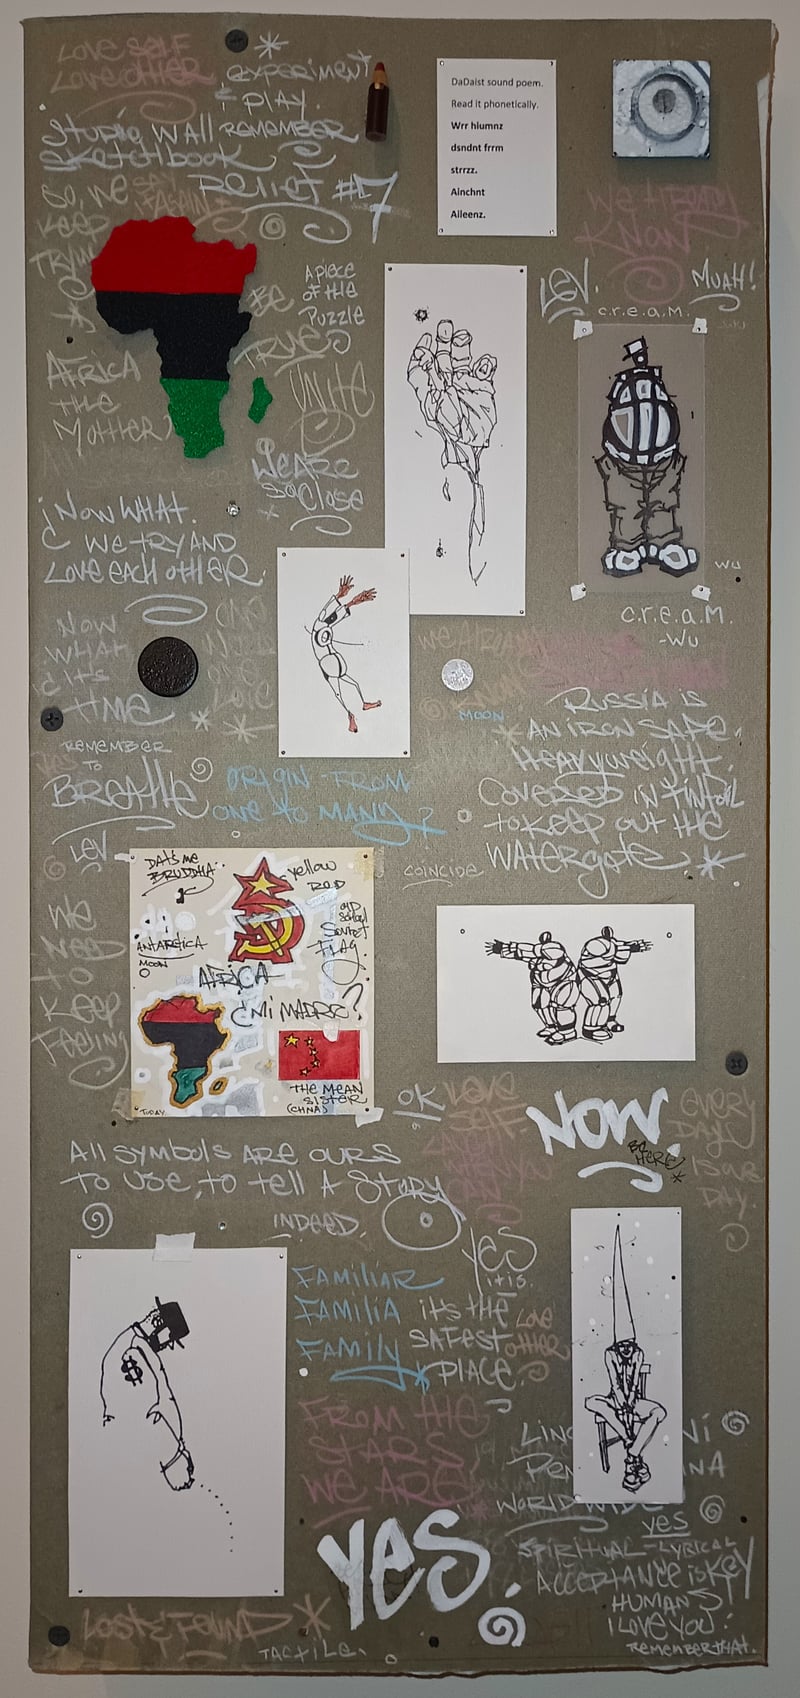 LOVE SELF
LOVE OTHER
EXPERIMENT
& PLAY.
STUDIO WALL REMEMBER
SKETCHBOOK
RELIEF #7
SO, WE
KEEP
TRYIN
AGAIN
DaDaist sound poem.
Read it phonetically.
Wrr hlumnz
dsndnt frrm
strrzz.
Alnchnt
Aileenz.
WE ALREADY
KNOW
A PIECE
OF THE
PUZZLE
BE
TRUE
UNITE
LEV.
MUAH!
c.r.e.a.m.
AFRICA
THE
MOTHER
WE ARE
SO CLOSE
¿NOW WHAT.
WE TRY AND
LOVE EACH OTHER.
WU
c.r.e.a.m.
-WU
NOW
WHAT
IT'S
TIME
WE ALREADY
KNOW
MOON
RUSSIA IS
AN IRON SAFE.
HEAVYWEIGHT.
COVERED IN TINFOIL
TO KEEP OUT THE
WATERGATE
REMEMBER
TO
BREATHE
ORIGIN-FROM
ONE TO MANY?
LEV
COINCIDE
DATS ME
BRUDDHA
YELLOW
RED
OLD
SCHOOL
SOVIET
FLAG
ANTARCTICA
MOON
AFRICA
¿MI MADRE?
THE MEAN
SISTER
(CHINA)
TODAY.
WE
NEED
TO
KEEP
FEELING
OK
LOVE
SELF
NOW.
BE
HERE
EVERY
DAY
IS OUR
DAY.
ALL SYMBOLS ARE OURS
TO USE, TO TELL A STORY
INDEED.
YES
it is.
FAMILIAR
FAMILIA
FAMILY
IT'S THE
SAFEST
PLACE.
LOVE
OTHER
FROM THE
STARS
WE ARE
WORLD WIDE
YES
YES.
SPIRITUAL-LYRICAL
ACCEPTANCE IS KEY
HUMANS!
I LOVE YOU!
REMEMBER THAT.
LOST & FOUND
TACTILE.